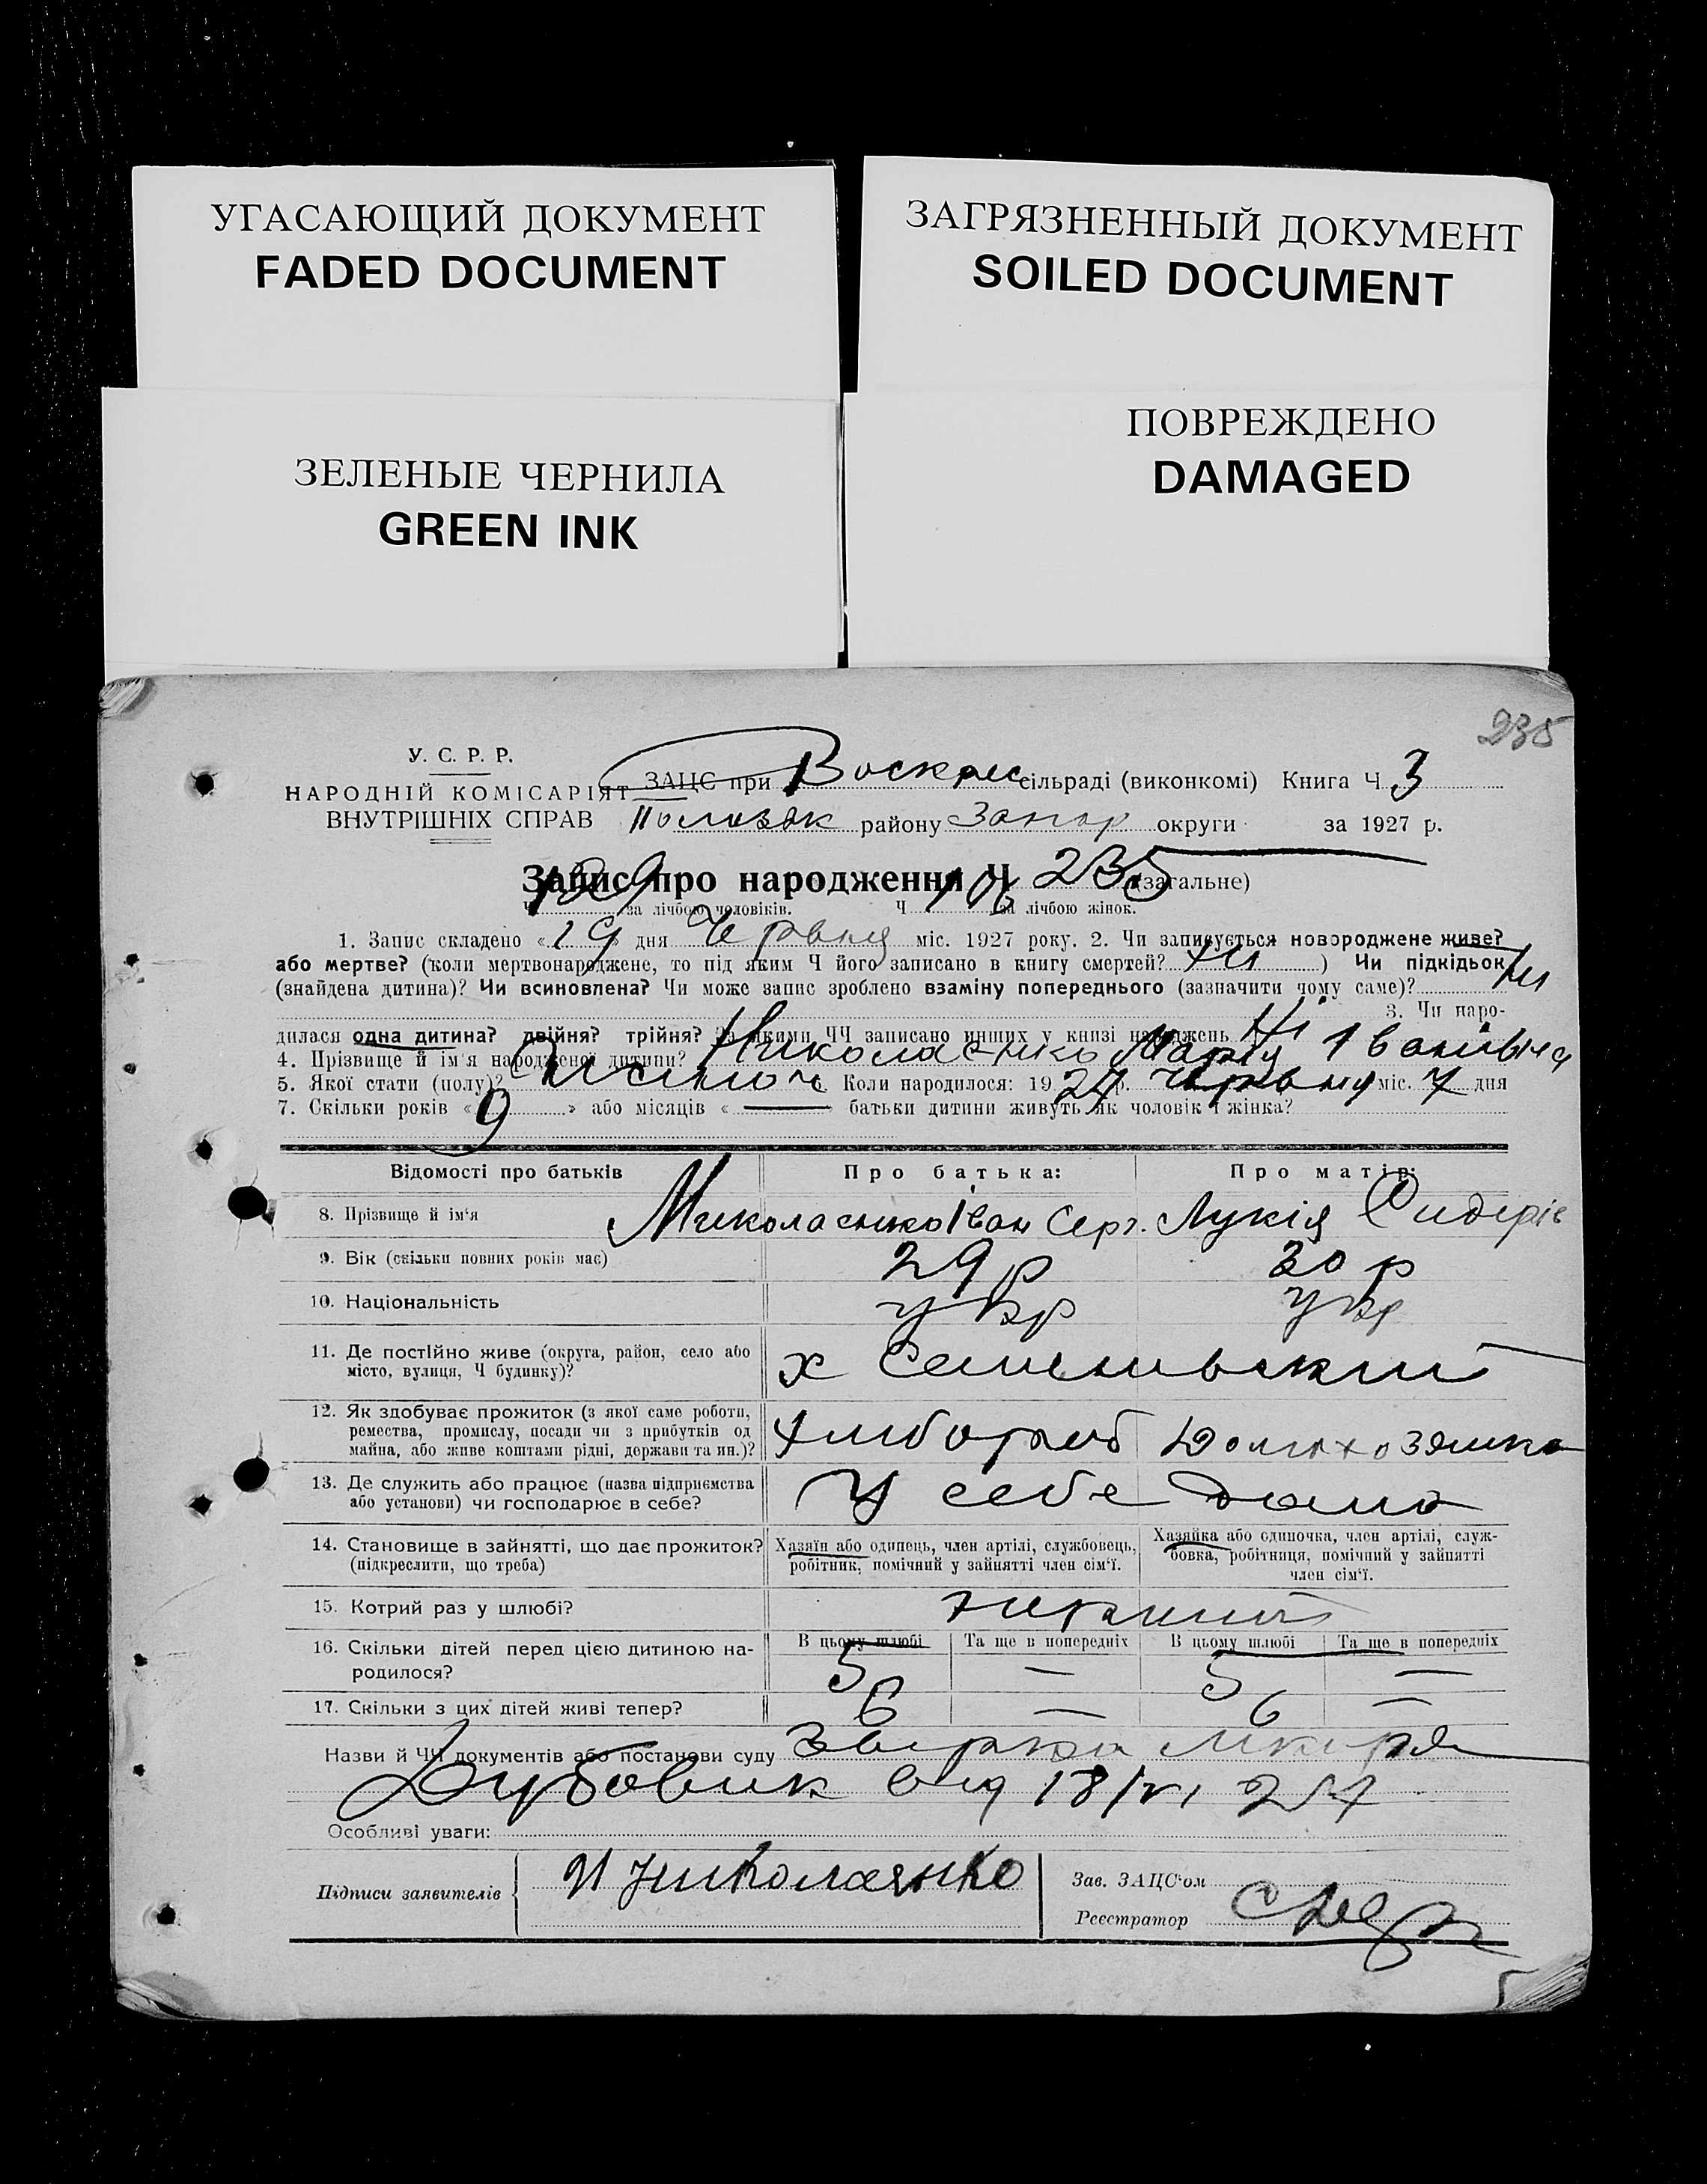 УГАСАЮЩИЙ ДОКУМЕНТ
FADED DOCUMENT
ЗАГРЯЗНЕННЫЙ ДОКУМЕНТ
SOILED DOCUMENT
ЗЕЛЕНЫЕ ЧЕРНИЛА
GREEN INK
ПОВРЕЖДЕНО
DAMAGED
235
У. С. Р. Р.
НАРОДНІЙ КОМІСАРІЯТ
ВНУТРІШНІХ СПРАВ
ЗАЦС при Воскрес сільраді (виконкомі) Книга Ч 3
району Запор округи за 1927 р.
Запис про народження Ч 235 (загальне)
Ч 129 за лічбою чоловіків. Ч 106 за лічбою жінок.
1. Запис складено «19» дня Червня міс. 1927 року. 2. Чи записується новороджене живе?
або мертве? (коли мертвонароджене, то під яким Ч його записано в книгу смертей? ) Чи підкідьок
(знайдена дитина)? Чи всиновлена? Чи може запис зроблено взаміну попереднього (зазначити чому саме)?
3. Чи наро-
дилася одна дитина? двійня? трійня? За якими ЧЧ записано инших у книзі народжень Ні
4. Прізвище й ім'я народженої дитини? Николаенко Марія Іванівна
5. Якої стати (полу)? 6. Коли народилося: 1927 р. Червня міс. 7 дня
7. Скільки років «9» або місяців « — » батьки дитини живуть як чоловік і жінка?
Відомості про батьків Про батька: Про матір:
8. Прізвище й ім'я Миколаенко Іван Серг. Лукія Сидорів
9. Вік (скільки повних років має) 29 р 30 р
10. Національність укр укр
11. Де постійно живе (округа, район, село або
місто, вулиця, Ч будинку)?
х
12. Як здобуває прожиток (з якої саме роботи,
ремества, промислу, посади чи з прибутків од
майна, або живе коштами рідні, держави та ин.)?
Хлибороб Домохозяйка
13. Де служить або працює (назва підприємства
або установи) чи господарює в себе?
У себе дома
14. Становище в зайнятті, що дає прожиток?
(підкреслити, що треба)
Хазяїн або одинець, член артілі, службовець,
робітник, помічний у зайнятті член сім'ї.
Хазяйка або одиночка, член артілі, служ-
бовка, робітниця, помічний у зайнятті
член сім'ї.
15. Котрий раз у шлюбі?
16. Скільки дітей перед цією дитиною на-
родилося?
В цьому шлюбі Та ще в попередніх В цьому шлюбі Та ще в попередніх
5 — 5 —
17. Скільки з цих дітей живі тепер? 6 — 6 —
Назви й ЧЧ документів або постанови суду
від 18/VI 27
Особливі уваги:
Підписи заявителів И Николаянко
Зав. ЗАЦС'ом
Реєстратор